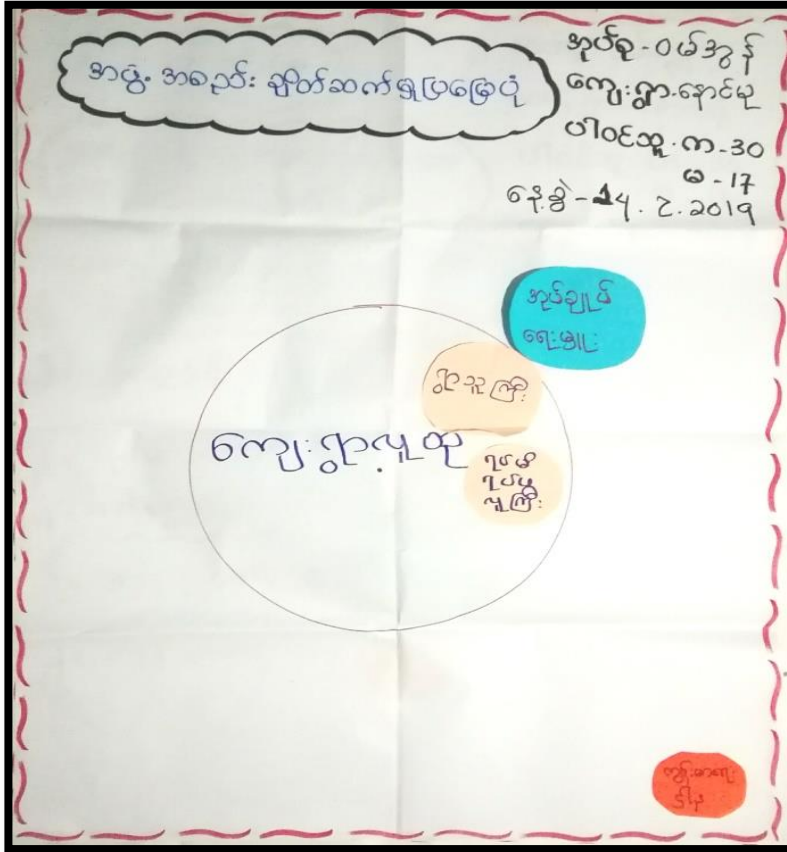 အဖွဲ့ အစည်း ချိတ်ဆက်မှုပြမြေပုံ
အုပ်စု - ဝမ်အွန်
ကျေးရွာ - နောင်မု
ပါဝင်သူ - ကာ - 30
မ - 17
နေ့စွဲ - 24 . 7 . 2019
အုပ်ချုပ်
ရေးမှူး
ရွာသူကြီး
ကျေးရွာလူထု
ရပ်မိ
ရပ်ဖ
လူကြီး
ကျန်းမာရေး
ဌာန